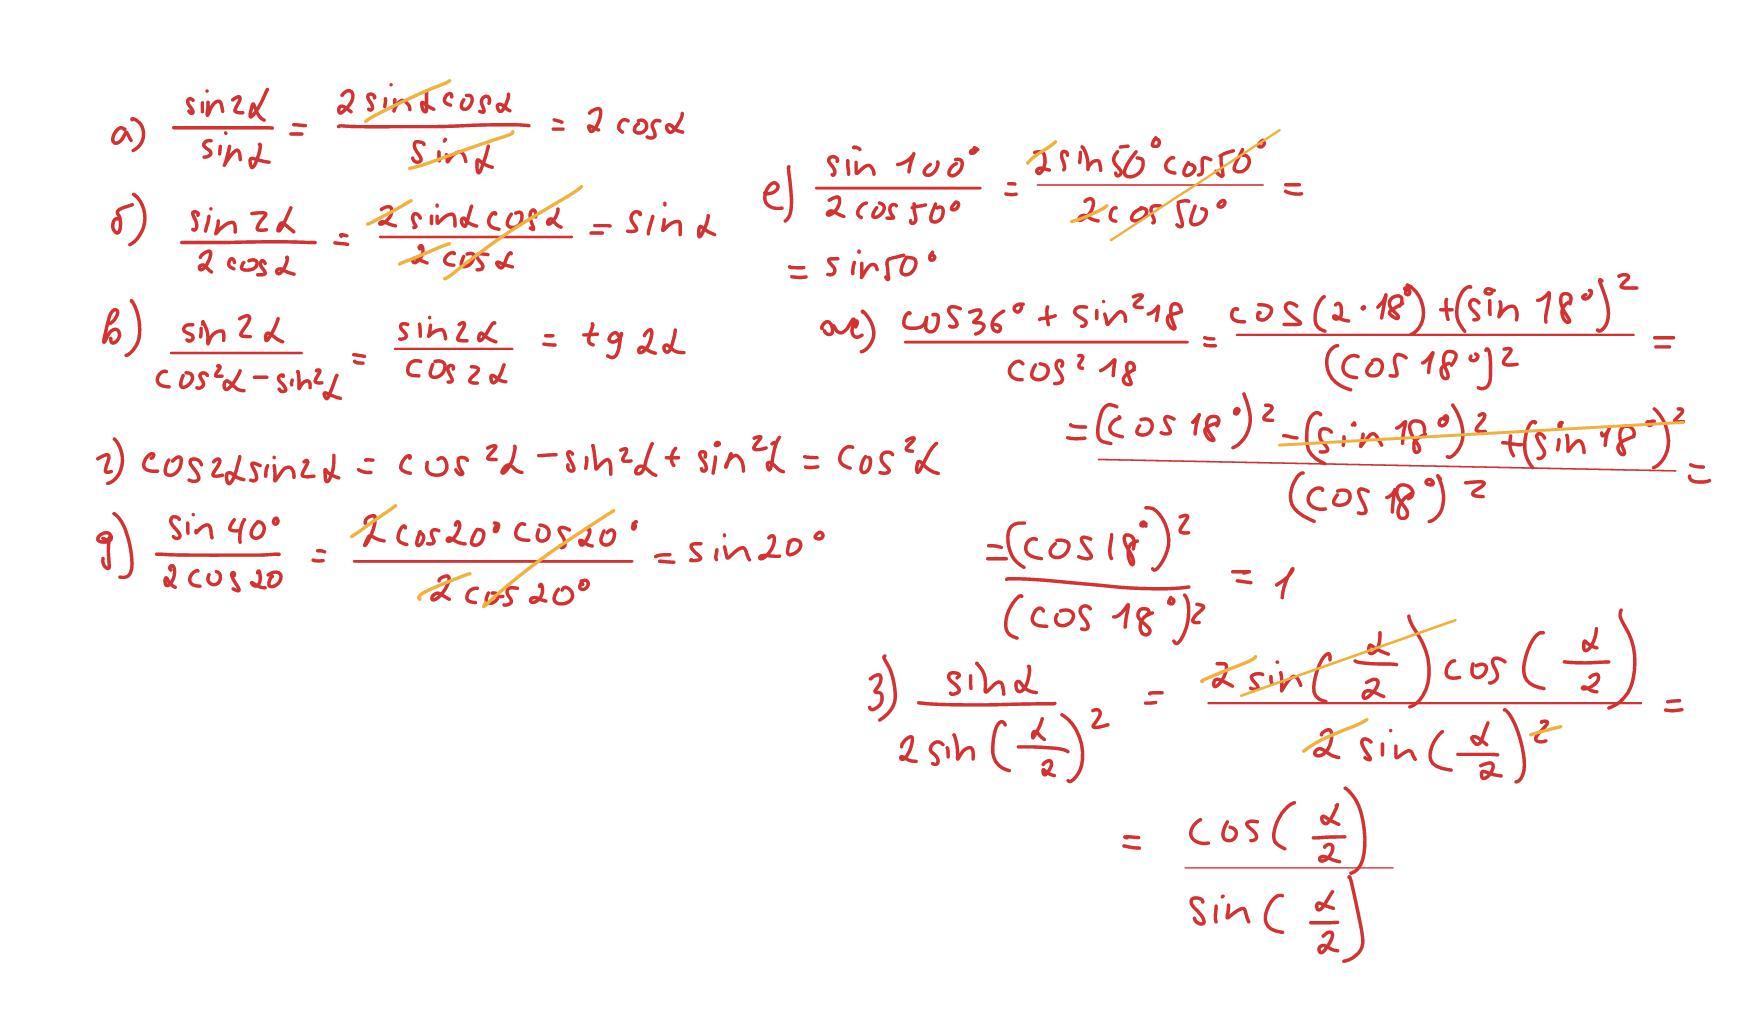 а) sin2α/sinα = 2sinαcosα/sinα = 2cosα
б) sin2α/2cosα = 2sinαcosα/2cosα = sinα
в) sin2α/cos²α-sin²α = sin2α/cos2α = tg2α
г) cos2αsin2α = cos²α-sin²α+sin²α = cos²α
д) sin40°/2cos20 = 2cos20°cos20°/2cos20° = sin20°
е) sin100°/2cos50° = 2sin50°cos50°/2cos50° =
= sin50°
ж) cos36°+sin²18/cos²18 = cos(2·18°)+(sin18°)²/(cos18°)² =
= (cos18°)²-(sin18°)²+(sin18°)²/(cos18°)² =
= (cos18°)²/(cos18°)² = 1
з) sinα/2sin(α/2)² = 2sin(α/2)cos(α/2)/2sin(α/2)² =
= cos(α/2)/sin(α/2)